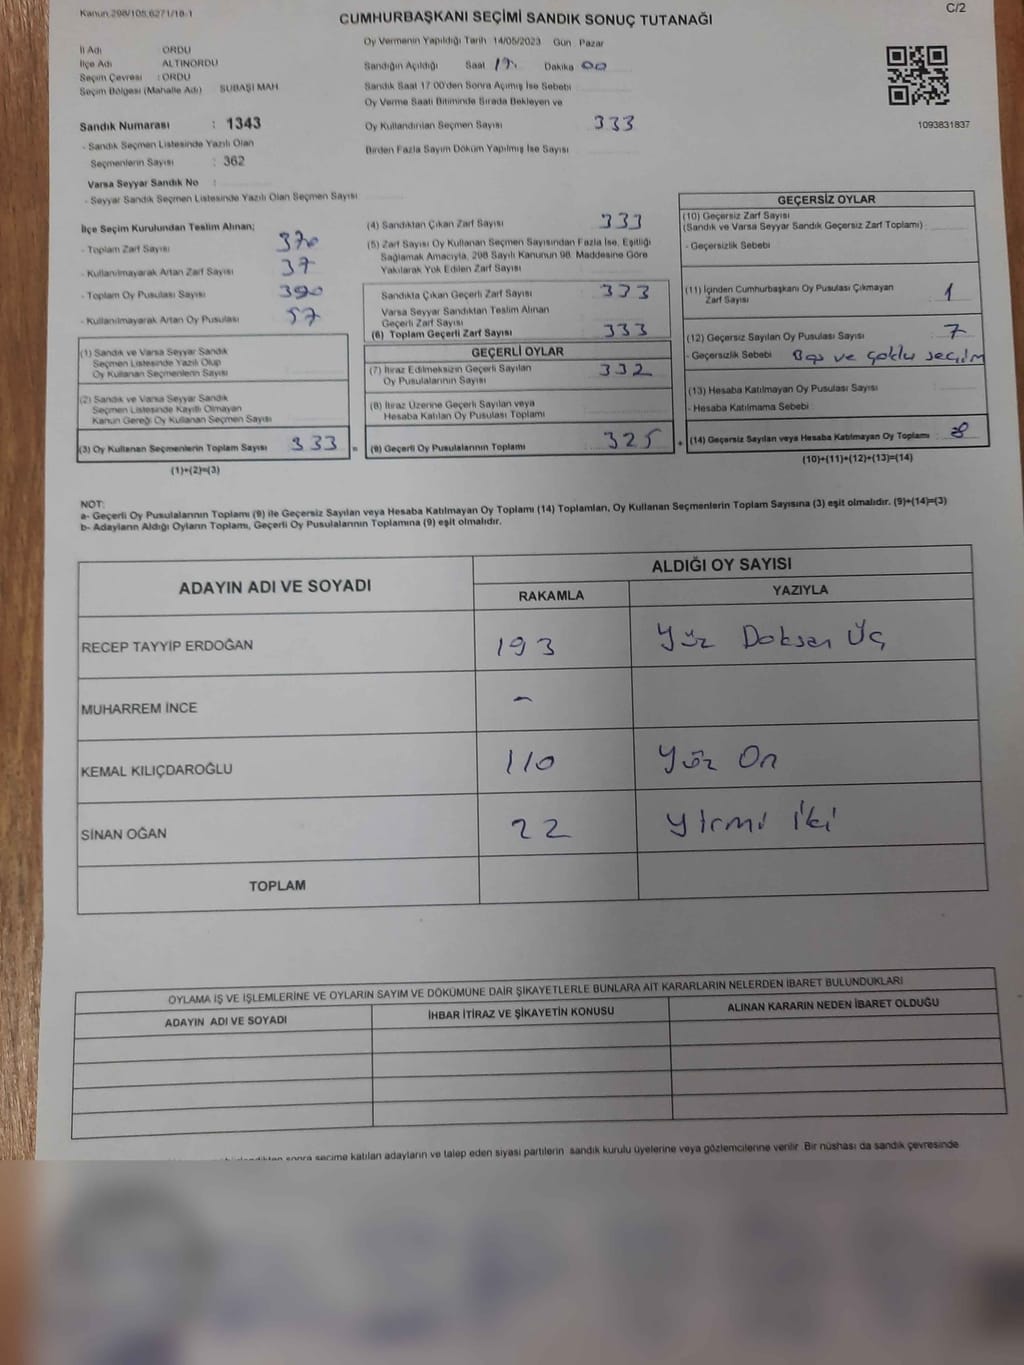 Kanun:298/105,6271/18-1
C/2
CUMHURBAŞKANI SEÇİMİ SANDIK SONUÇ TUTANAĞI
İl Adı ORDU
İlçe Adı ALTINORDU
Seçim Çevresi : ORDU
Seçim Bölgesi (Mahalle Adı) SUBAŞI MAH.
Sandık Numarası : 1343
- Sandık Seçmen Listesinde Yazılı Olan
Seçmenlerin Sayısı : 362
Varsa Seyyar Sandık No :
- Seyyar Sandık Seçmen Listesinde Yazılı Olan Seçmen Sayısı
Oy Vermenin Yapıldığı Tarih 14/05/2023 Gün Pazar
Sandığın Açıldığı Saat 17. Dakika 00
Sandık Saat 17:00'den Sonra Açımış İse Sebebi
Oy Verme Saati Bitiminde Sırada Bekleyen ve
Oy Kullandırılan Seçmen Sayısı 333
Birden Fazla Sayım Döküm Yapılmış İse Sayısı
1093831837
İlçe Seçim Kurulundan Teslim Alınan;
- Toplam Zarf Sayısı 370
- Kullanılmayarak Artan Zarf Sayısı 37
- Toplam Oy Pusulası Sayısı 390
- Kullanılmayarak Artan Oy Pusulası 57
(1) Sandık ve Varsa Seyyar Sandık
Seçmen Listesinde Yazılı Olup
Oy Kullanan Seçmenlerin Sayısı
(2) Sandık ve Varsa Seyyar Sandık
Seçmen Listesinde Kayıtlı Olmayan
Kanun Gereği Oy Kullanan Seçmen Sayısı
(3) Oy Kullanan Seçmenlerin Toplam Sayısı 333 =
(1)+(2)=(3)
(4) Sandıktan Çıkan Zarf Sayısı 333
(5) Zarf Sayısı Oy Kullanan Seçmen Sayısından Fazla İse, Eşitliği
Sağlamak Amacıyla, 298 Sayılı Kanunun 98. Maddesine Göre
Yakılarak Yok Edilen Zarf Sayısı
Sandıkta Çıkan Geçerli Zarf Sayısı 333
Varsa Seyyar Sandıktan Teslim Alınan
Geçerli Zarf Sayısı
(6) Toplam Geçerli Zarf Sayısı 333
GEÇERLİ OYLAR
(7) İtiraz Edilmeksizin Geçerli Sayılan
Oy Pusulalarının Sayısı 332
(8) İtiraz Üzerine Geçerli Sayılan veya
Hesaba Katılan Oy Pusulası Toplamı
(9) Geçerli Oy Pusulalarının Toplamı 325 +
GEÇERSİZ OYLAR
(10) Geçersiz Zarf Sayısı
(Sandık ve Varsa Seyyar Sandık Geçersiz Zarf Toplamı) :
- Geçersizlik Sebebi
(11) İçinden Cumhurbaşkanı Oy Pusulası Çıkmayan
Zarf Sayısı 1
(12) Geçersiz Sayılan Oy Pusulası Sayısı 7
- Geçersizlik Sebebi Boş ve çoklu seçim
(13) Hesaba Katılmayan Oy Pusulası Sayısı
- Hesaba Katılmama Sebebi
(14) Geçersiz Sayılan veya Hesaba Katılmayan Oy Toplamı 8
(10)+(11)+(12)+(13)=(14)
NOT:
a- Geçerli Oy Pusulalarının Toplamı (9) ile Geçersiz Sayılan veya Hesaba Katılmayan Oy Toplamı (14) Toplamları, Oy Kullanan Seçmenlerin Toplam Sayısına (3) eşit olmalıdır. (9)+(14)=(3)
b- Adayların Aldığı Oyların Toplamı, Geçerli Oy Pusulalarının Toplamına (9) eşit olmalıdır.
ADAYIN ADI VE SOYADI ALDIĞI OY SAYISI
RAKAMLA YAZIYLA
RECEP TAYYİP ERDOĞAN 193 Yüz Doksan Üç
MUHARREM İNCE -
KEMAL KILIÇDAROĞLU 110 Yüz On
SİNAN OĞAN 22 Yirmi İki
TOPLAM
OYLAMA İŞ VE İŞLEMLERİNE VE OYLARIN SAYIM VE DÖKÜMÜNE DAİR ŞİKAYETLERLE BUNLARA AİT KARARLARIN NELERDEN İBARET BULUNDUKLARI
ADAYIN ADI VE SOYADI İHBAR İTİRAZ VE ŞİKAYETİN KONUSU ALINAN KARARIN NEDEN İBARET OLDUĞU
sonra seçime katılan adayların ve talep eden siyasi partilerin sandık kurulu üyelerine veya gözlemcilerine verilir. Bir nüshası da sandık çevresinde